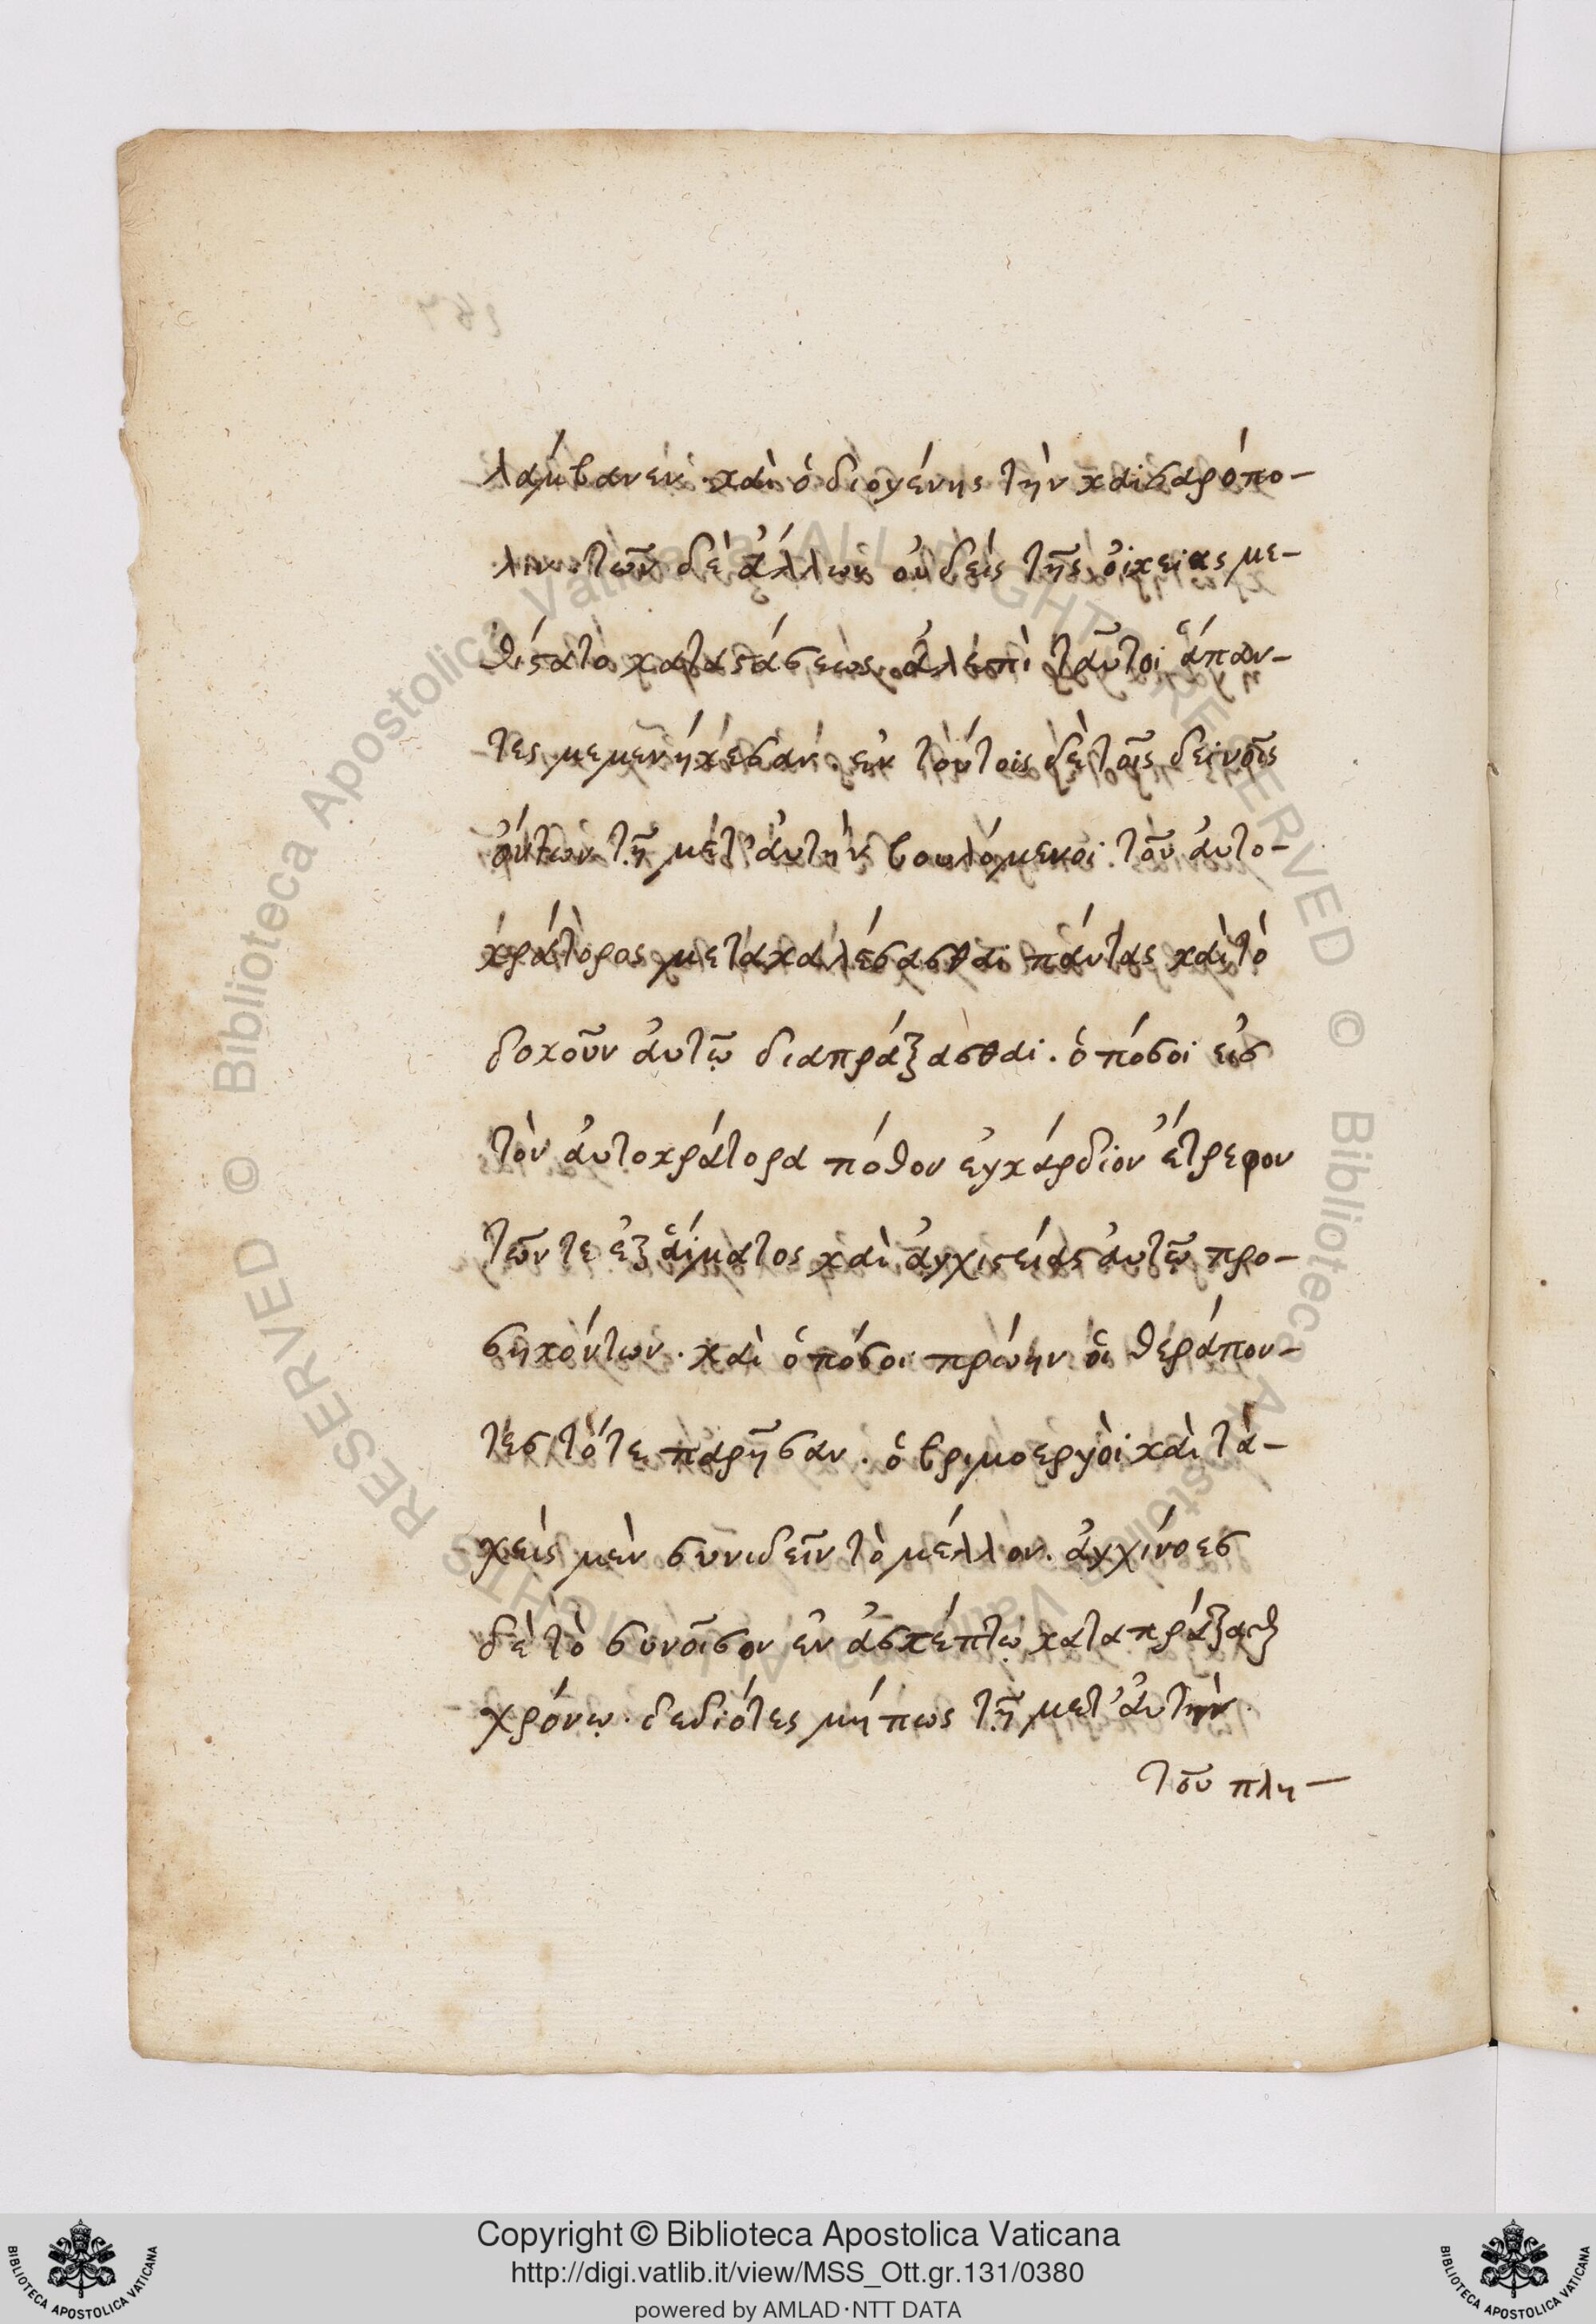 λαμβανειν· καὶ ὁ διογένης τὴν καισαρόπο-
λιν. τῶν δὲ ἄλλων οὐδεὶς τῆς οἰκείας με-
θίστατο καταστάσεως. ἀλ' ἐπὶ ταῦτοι ἅπαν-
τες μεμενήκεσαν. ἐν τούτοις δὲ τοῖς δεινοῖς
ὄντων τῇ μετ' ἀυτὴν βουλόμενοι τοῦ ἀυτο-
κράτορος μετακαλέσασθαι πάντας καὶ τὸ
δοκοῦν ἀυτῷ διαπράξασθαι. ὁπόσοι εἰσ
τὸν ἀυτοκράτορα πόθον ἐγκάρδιον ἔτρεφον
τῶν τε ἐξ ἅιματος καὶ ἀγχιστείας ἀυτῷ προ-
σηκόντων· καὶ ὁπόσοι πρώην οἱ θεράπον-
τεσ τότε παρῆσαν. ὀβριμοεργοὶ καὶ τα-
χεῖς μὲν συνιδεῖν τὸ μέλλον. ἀγχίνοεσ
δὲ τὸ συνοῖσον ἐν ἀσκέπτῳ καταπράξασθαι
χρόνῳ· δεδιότες μήπως τῇ μετ' ἀυτὴν
τοῦ πλη-
Copyright © Biblioteca Apostolica Vaticana
http://digi.vatlib.it/view/MSS_Ott.gr.131/0380
powered by AMLAD·NTT DATA
BIBLIOTECA APOSTOLICA VATICANA
BIBLIOTECA APOSTOLICA VATICANA